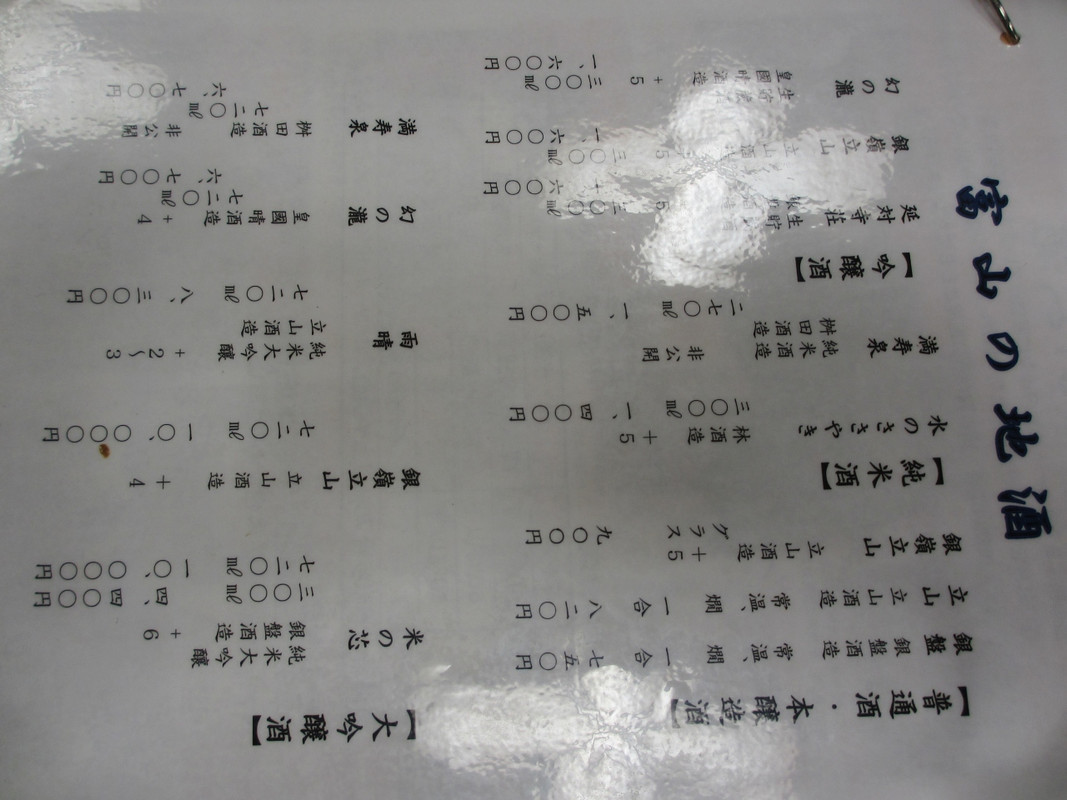 富山の地酒
【普通酒・本醸造酒】
銀盤 銀盤酒造 常温、燗 一合 七五〇円
立山 立山酒造 常温、燗 一合 八二〇円
銀嶺立山 立山酒造 +5
グラス 九〇〇円
【純米酒】
水のささやき 林酒造 +5
三〇〇㎖ 一、四〇〇円
満寿泉 純米酒造 非公開
桝田酒造
二七〇㎖ 一、五〇〇円
【吟醸酒】
延対寺荘 生貯 5
六〇〇円
銀嶺立山 立山酒造 5
三〇〇㎖ 一、六〇〇円
幻の瀧
皇國晴酒造 +5
三〇〇㎖ 一、六〇〇円
【大吟醸酒】
純米大吟醸
米の芯 銀盤酒造 +6
三〇〇㎖ 四、四〇〇円
七二〇㎖ 一〇、〇〇〇円
銀嶺立山 立山酒造 +4
七二〇㎖ 一〇、〇〇〇円
雨晴 純米大吟醸 +2~3
立山酒造
七二〇㎖ 八、三〇〇円
幻の瀧 皇國晴酒造 +4
七二〇㎖
六、七〇〇円
満寿泉 桝田酒造 非公開
七二〇㎖
六、七〇〇円